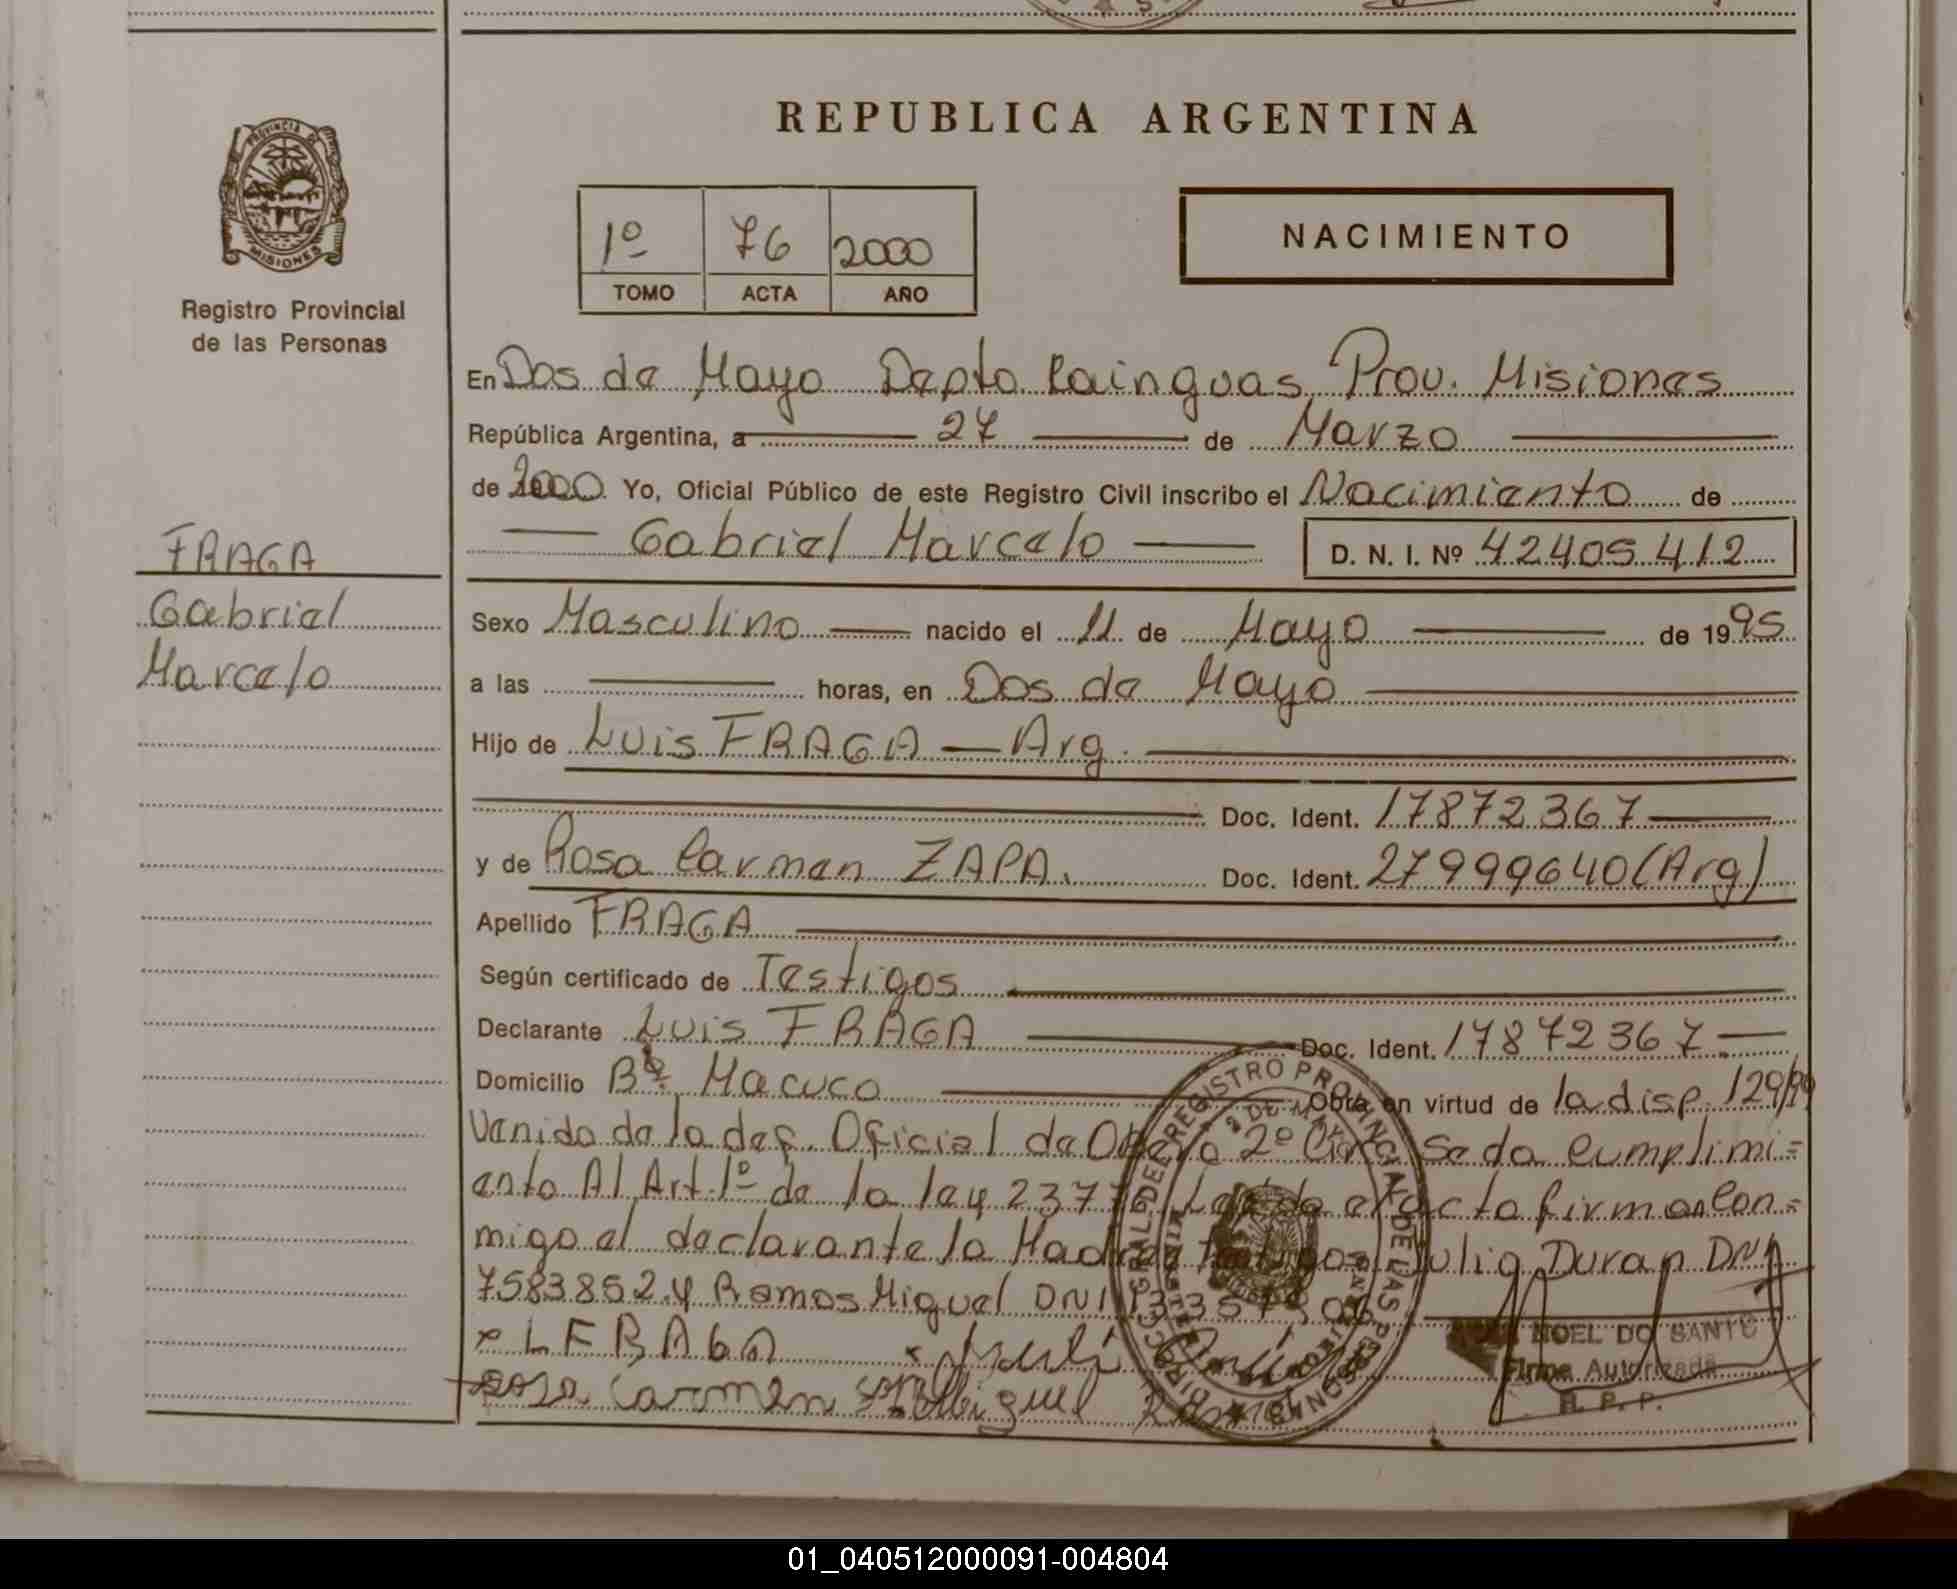 REPUBLICA ARGENTINA
PROVINCIA DE
MISIONES
Registro Provincial
de las Personas
1º 76 2000
TOMO ACTA AÑO
NACIMIENTO
En Dos de Mayo Depto Cainguas Prov. Misiones
República Argentina, a 27 de Marzo
de 2000 Yo, Oficial Público de este Registro Civil inscribo el Nacimiento de
Gabriel Marcelo D. N. I. Nº 42405412
FRAGA
Gabriel
Marcelo
Sexo Masculino nacido el 11 de Mayo de 1995
a las horas, en Dos de Mayo
Hijo de Luis FRAGA — Arg.
Doc. Ident. 17872367
y de Rosa Carmen ZAPA. Doc. Ident. 27999640 (Arg)
Apellido FRAGA
Según certificado de Testigos
Declarante Luis FRAGA Doc. Ident. 17872367
Domicilio Bº Macuco Obra en virtud de la disp. 129/99
Venido de la def. Oficial de 2º Se da Cumplimi=
ento Al Art. 1º de la ley el acta firman Con=
migo el declarante la Duran DNI
7583852 y Ramos Miguel DNI
L FRAGA
Rosa Carmen Miguel
NOEL DO SANTO
Firma Autorizada
R. P. P.
DIRECC. GRAL. DEL REGISTRO PROVINCIAL DE LAS PERSONAS
2 DE MAYO
01_040512000091-004804